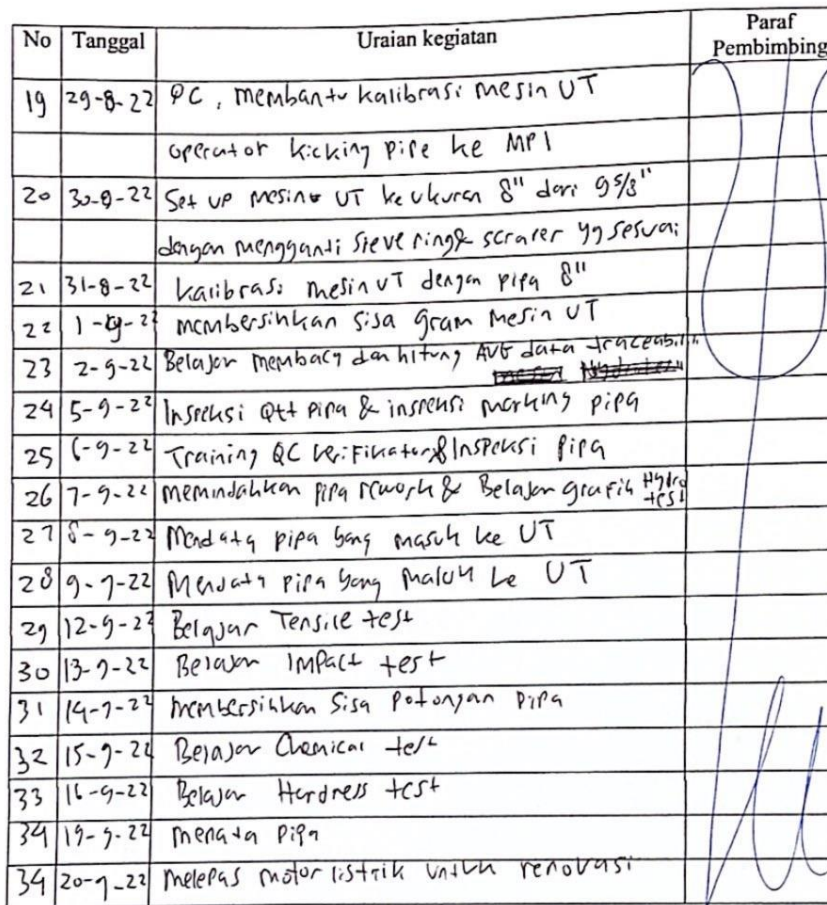 No Tanggal Uraian kegiatan Paraf Pembimbing
19 29-8-22 QC, membantu kalibrasi mesin UT
operator kicking pipe ke MPI
20 30-8-22 Set up mesin UT ke ukuran 8" dari 9 5/8"
dengan mengganti sieve ring & scraper yg sesuai
21 31-8-22 kalibrasi mesin UT dengan pipa 8"
22 1-9-22 membersihkan sisa gram mesin UT
23 2-9-22 Belajar membaca dan hitung AVG data
24 5-9-22 Inspeksi Qtt pipa & inspeksi marking pipa
25 6-9-22 Training QC verifikator & Inspeksi pipa
26 7-9-22 memindahkan pipa rework & Belajar grafik Hydro test
27 8-9-22 Mendata pipa yang masuk ke UT
28 9-9-22 Mendata pipa yang masuk ke UT
29 12-9-22 Belajar Tensile test
30 13-9-22 Belajar Impact test
31 14-9-22 membersihkan sisa potongan pipa
32 15-9-22 Belajar Chemical test
33 16-9-22 Belajar Hardness test
34 19-9-22 menata pipa
34 20-9-22 melepas motor listrik untuk renovasi